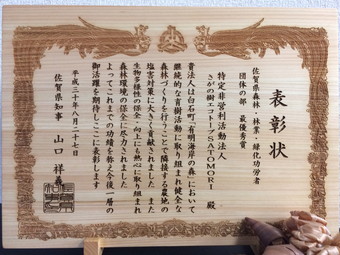 表彰状
佐賀県森林・林業・緑化功労者
団体の部 最優秀賞
特定非営利活動法人
さがの樹エコトープSATOMORI 殿
貴法人は白石町「有明海岸の森」において
継続的な育樹活動に取り組まれ健全な
森林づくりを行うことで隣接する農地の
塩害対策に大きく貢献されました また
生物多様性の保全・向上にも熱心に取り組まれ
森林環境の保全に尽力されました
よってこれまでの功績を称え今後一層の
御活躍を期待しここに表彰します
平成三十年八月二十七日
佐賀県知事 山口祥義